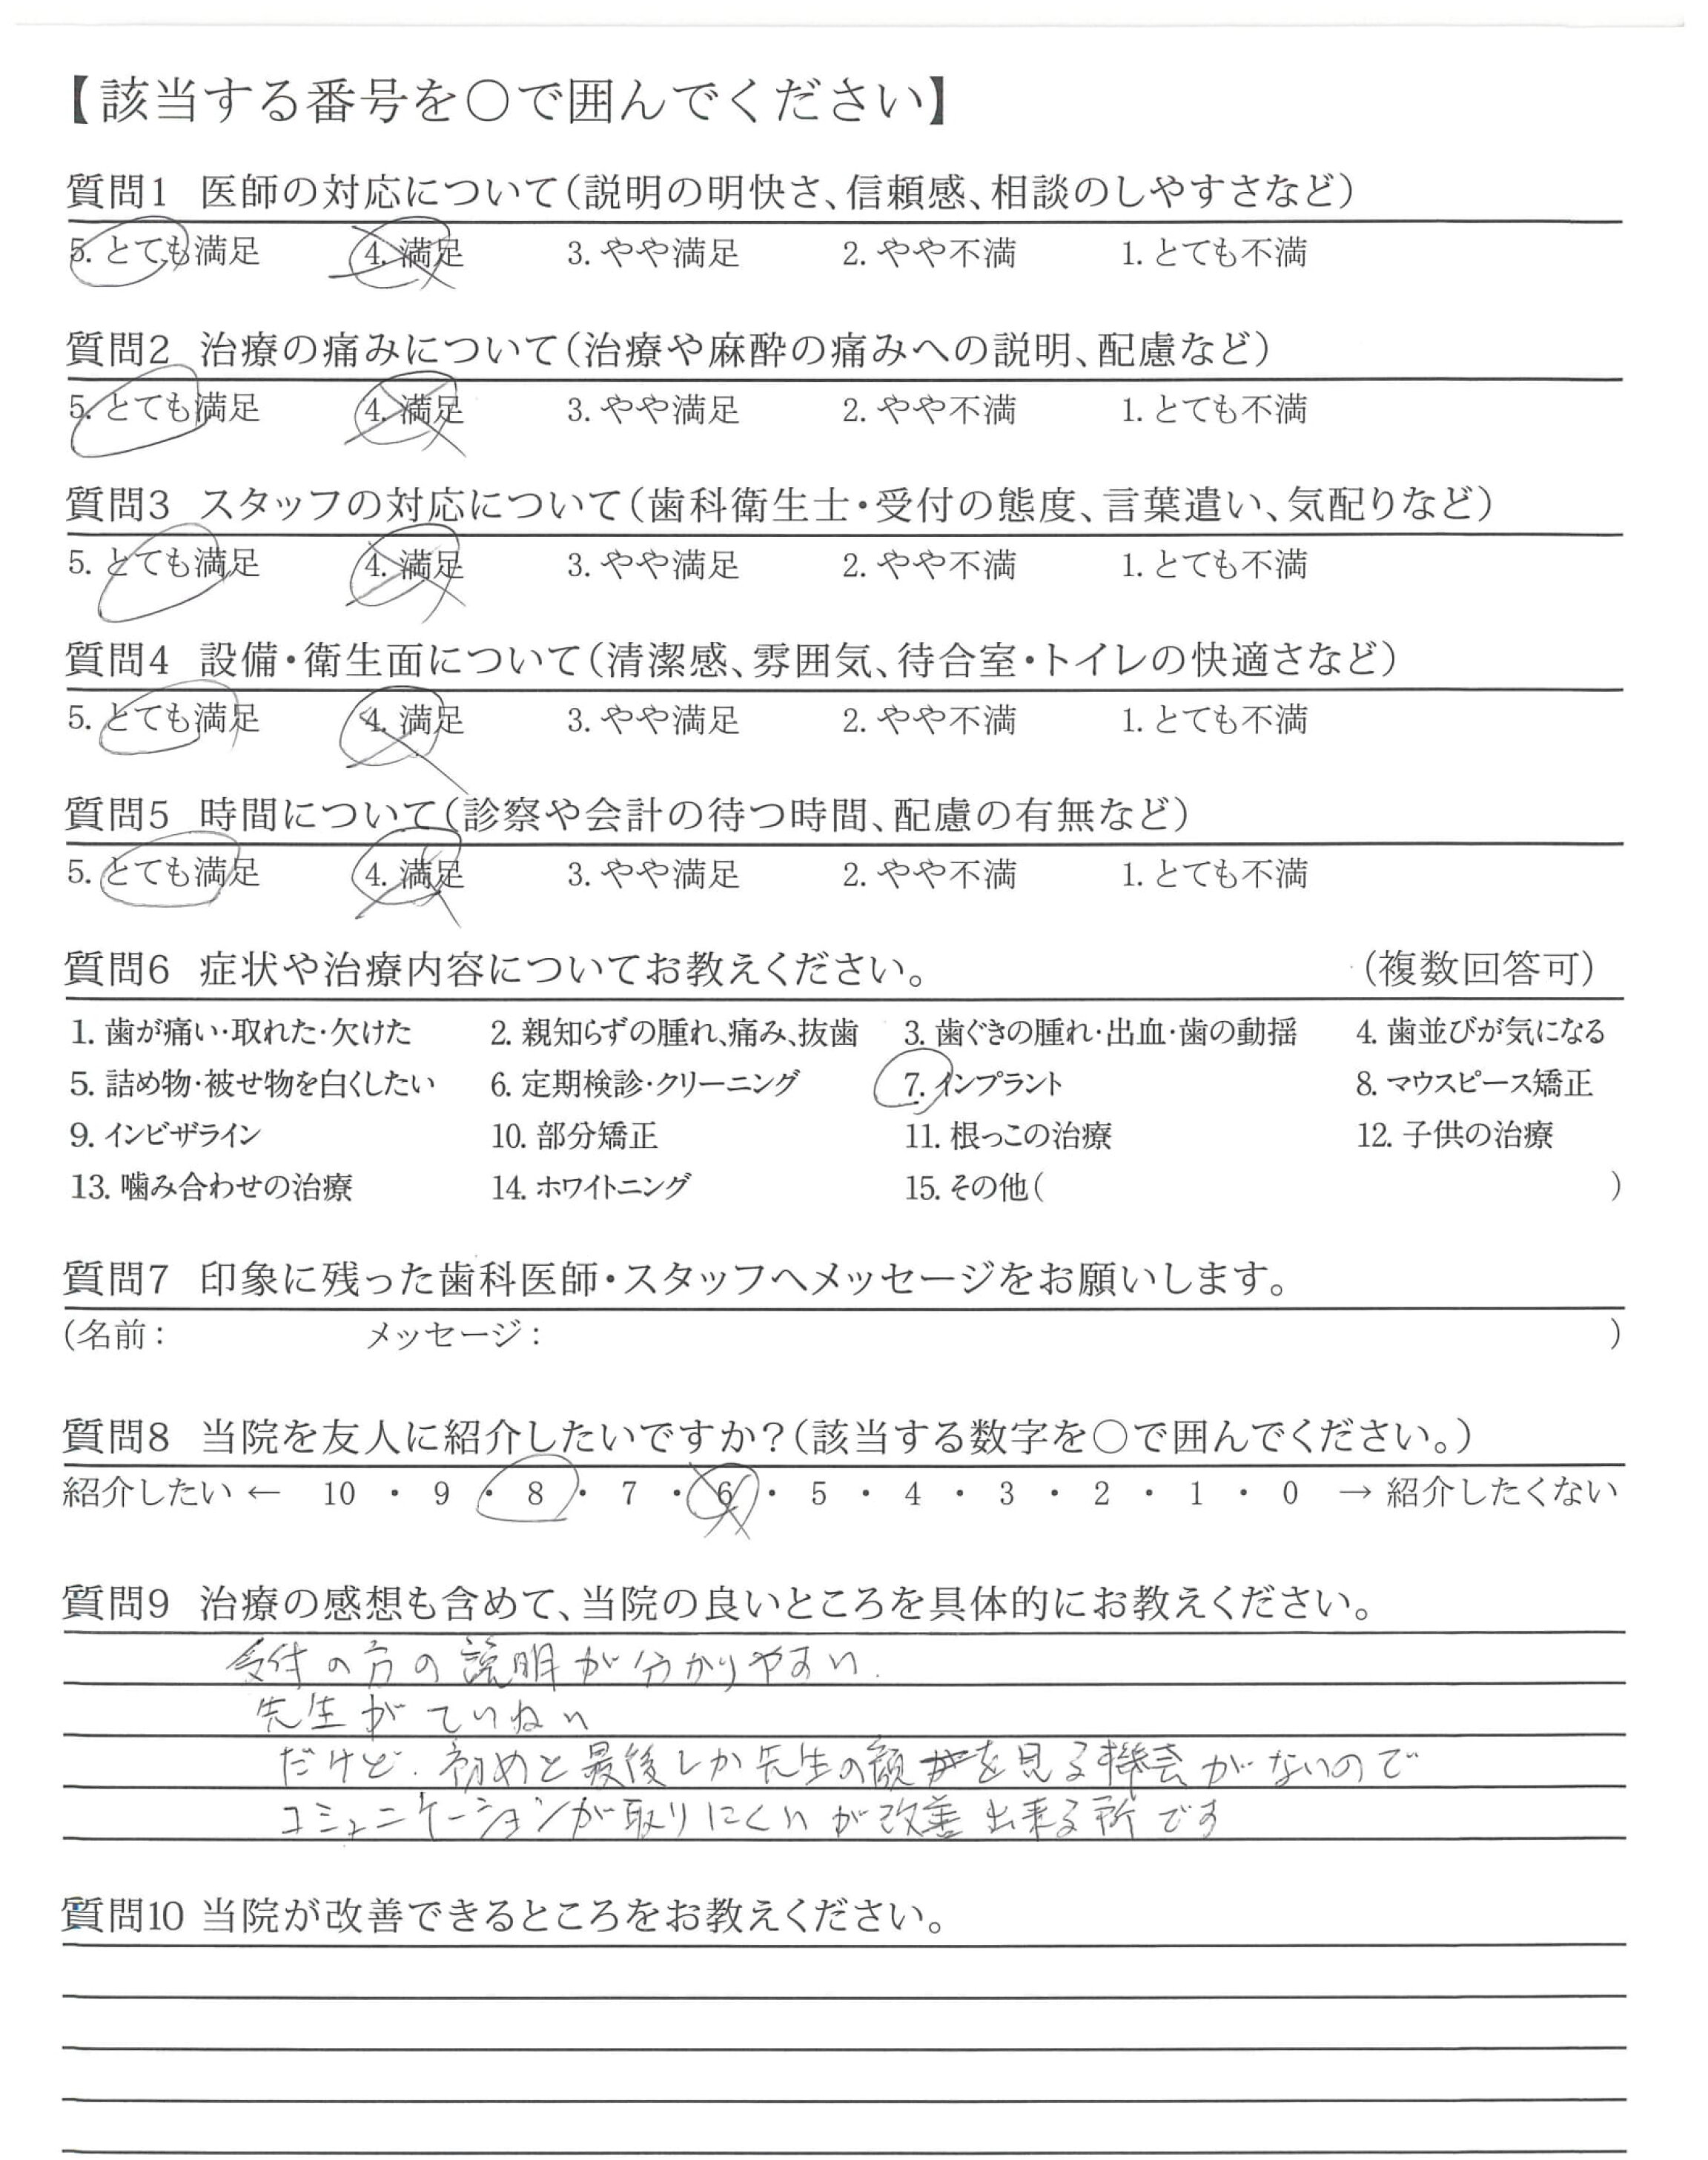 【該当する番号を○で囲んでください】
質問1 医師の対応について(説明の明快さ、信頼感、相談のしやすさなど)
5. とても満足 4. 満足 3. やや満足 2. やや不満 1. とても不満
質問2 治療の痛みについて(治療や麻酔の痛みへの説明、配慮など)
5. とても満足 4. 満足 3. やや満足 2. やや不満 1. とても不満
質問3 スタッフの対応について(歯科衛生士・受付の態度、言葉遣い、気配りなど)
5. とても満足 4. 満足 3. やや満足 2. やや不満 1. とても不満
質問4 設備・衛生面について(清潔感、雰囲気、待合室・トイレの快適さなど)
5. とても満足 4. 満足 3. やや満足 2. やや不満 1. とても不満
質問5 時間について(診察や会計の待つ時間、配慮の有無など)
5. とても満足 4. 満足 3. やや満足 2. やや不満 1. とても不満
質問6 症状や治療内容についてお教えください。 (複数回答可)
1. 歯が痛い・取れた・欠けた 2. 親知らずの腫れ、痛み、抜歯 3. 歯ぐきの腫れ・出血・歯の動揺 4. 歯並びが気になる
5. 詰め物・被せ物を白くしたい 6. 定期検診・クリーニング 7. インプラント 8. マウスピース矯正
9. インビザライン 10. 部分矯正 11. 根っこの治療 12. 子供の治療
13. 噛み合わせの治療 14. ホワイトニング 15. その他( )
質問7 印象に残った歯科医師・スタッフへメッセージをお願いします。
(名前: メッセージ: )
質問8 当院を友人に紹介したいですか?(該当する数字を○で囲んでください。)
紹介したい ← 10 ・ 9 ・ 8 ・ 7 ・ 6 ・ 5 ・ 4 ・ 3 ・ 2 ・ 1 ・ 0 → 紹介したくない
質問9 治療の感想も含めて、当院の良いところを具体的にお教えください。
受付の方の説明が分かりやすい.
先生がていねい
だけど. 初めと最後しか先生の顔を見る機会がないので
コミュニケーションが取りにくいが改善出来る所です
質問10 当院が改善できるところをお教えください。